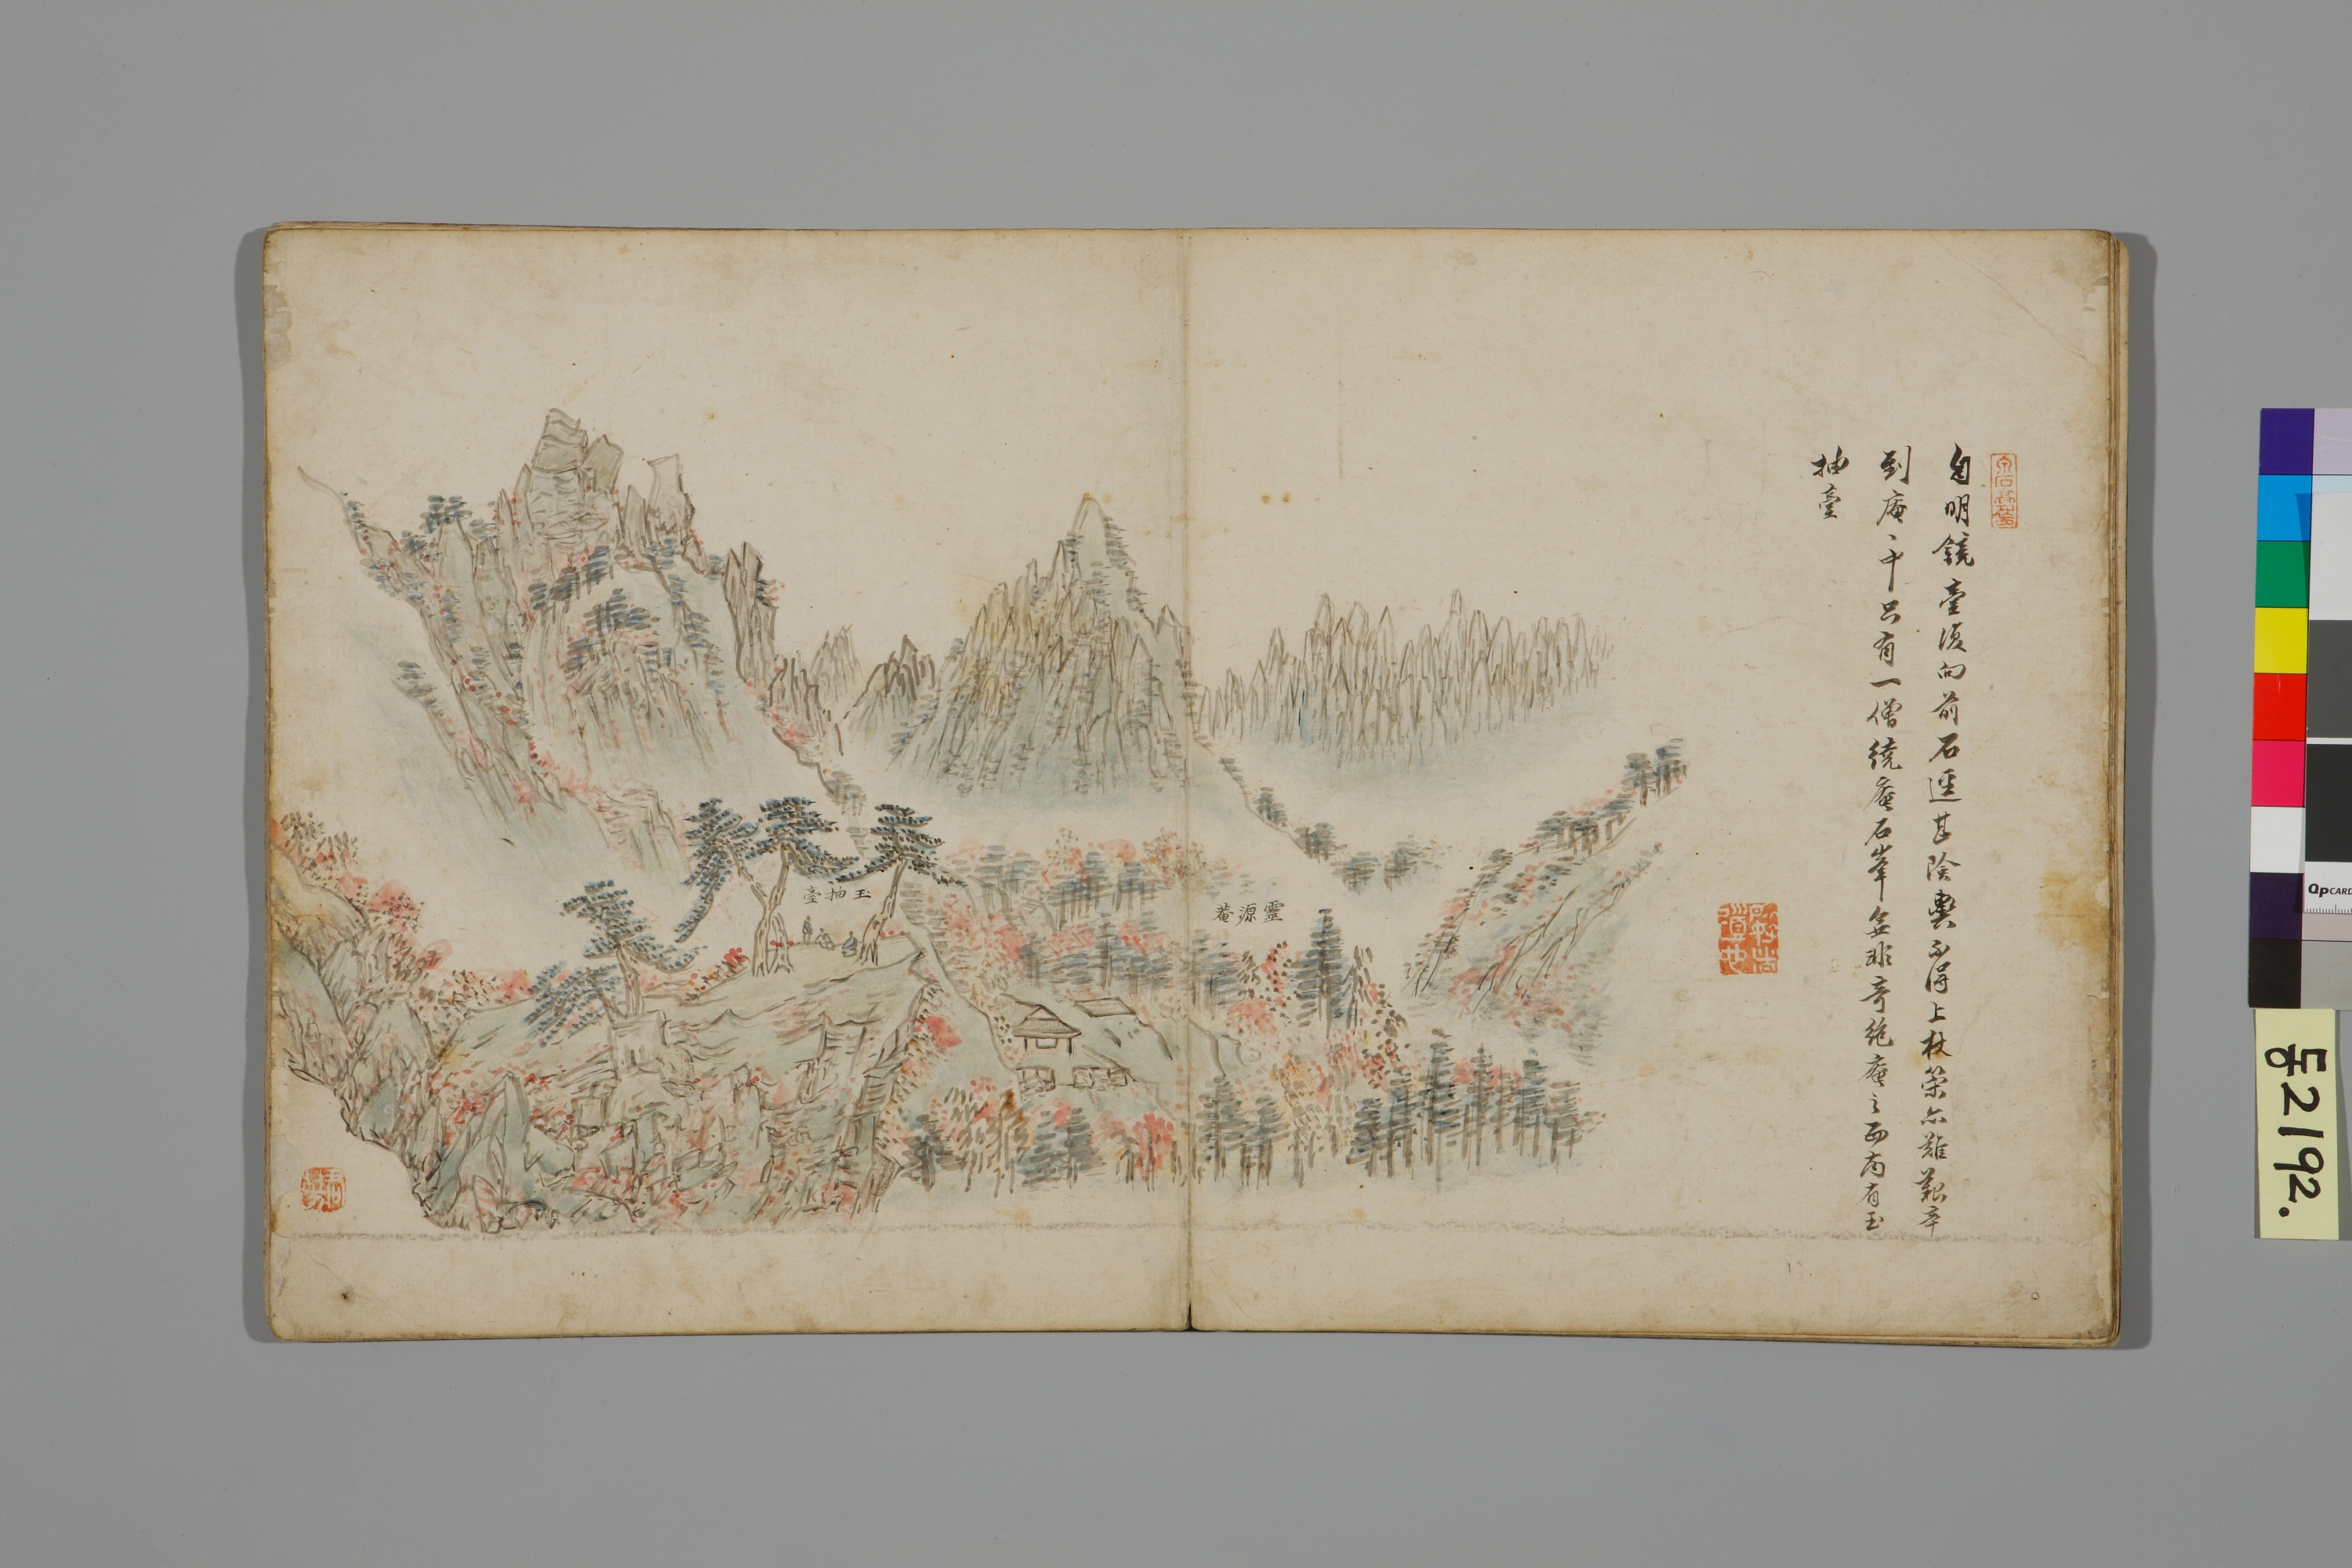 自明鏡臺復向前石逕甚險輿不得上杖策亦難艱辛
到庵〻中只有一僧繞庵石峯無非奇絶庵之西南有玉
抽臺
靈源菴
玉抽臺
QPCARD
동2192.